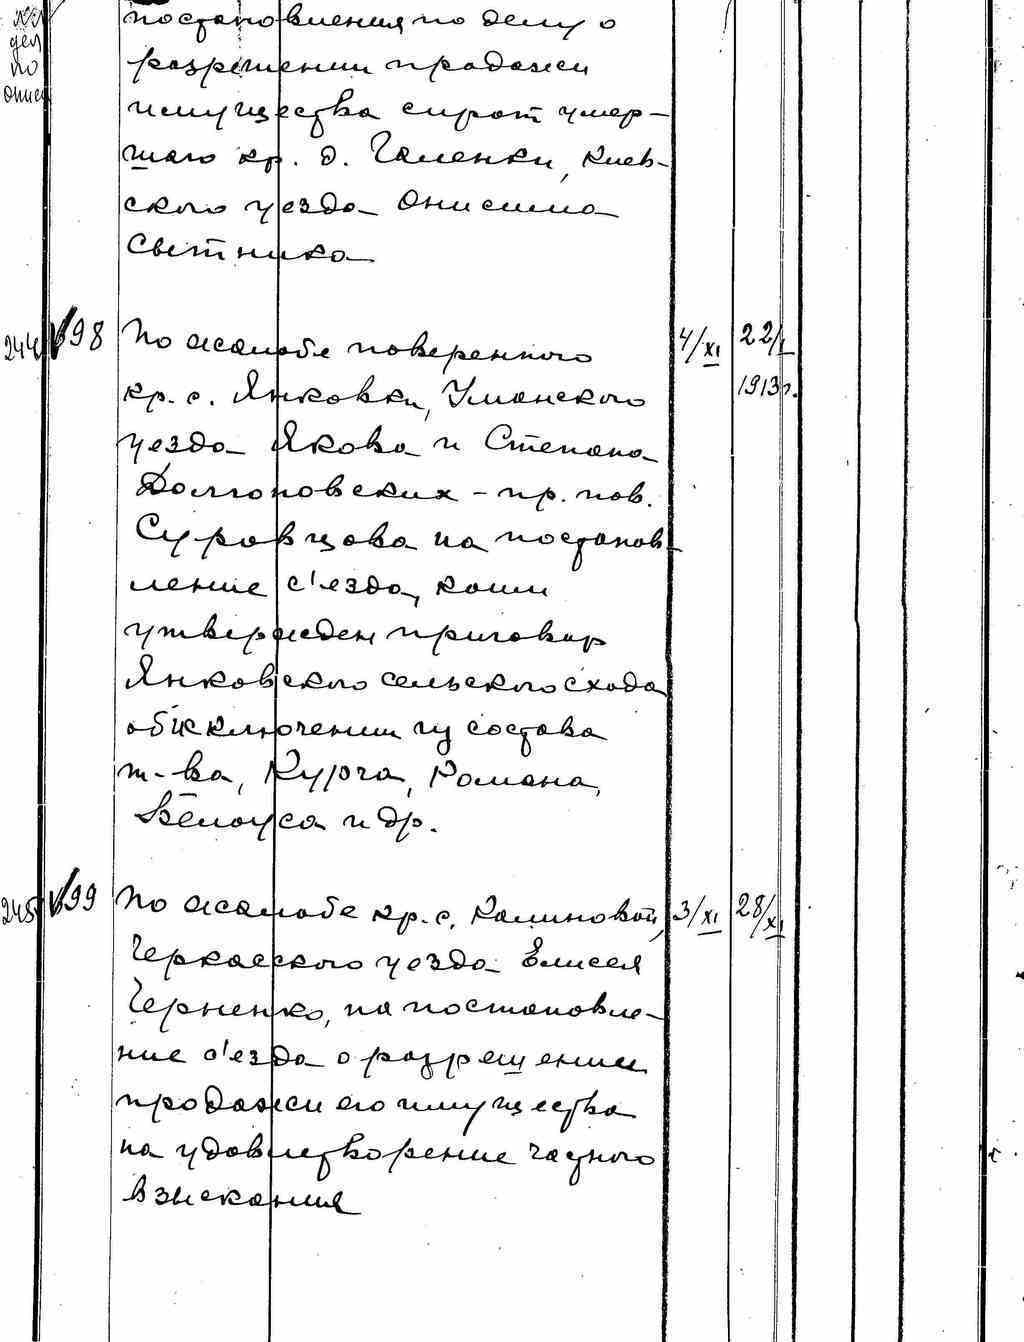 №№
дел
по
описи
постановления по делу о
разрешении продажи
имущества сирот умер-
шаго кр. д. Галенки, Киев-
ского уезда Онисима
Сытника
244 98 По жалобе поверенного 4/XI 22/I
1913 г.
кр. с. Янковки, Уманского
уезда Якова и Степана
Долгоповских - пр. пов.
Суровцова на постанов-
ление с'езда, коим
утвержден приговор
Янковского сельского схода
об исключении из состава
т-ва, Курча, Романа,
Белоуса и др.
245 99 По жалобе кр. с. Калиновой, 3/XI 28/XI
Черкасского уезда Елисея
Черненко, на постановле-
ние с'езда о разрешении
продажи его имущества
на удовлетворение частного
взыскания